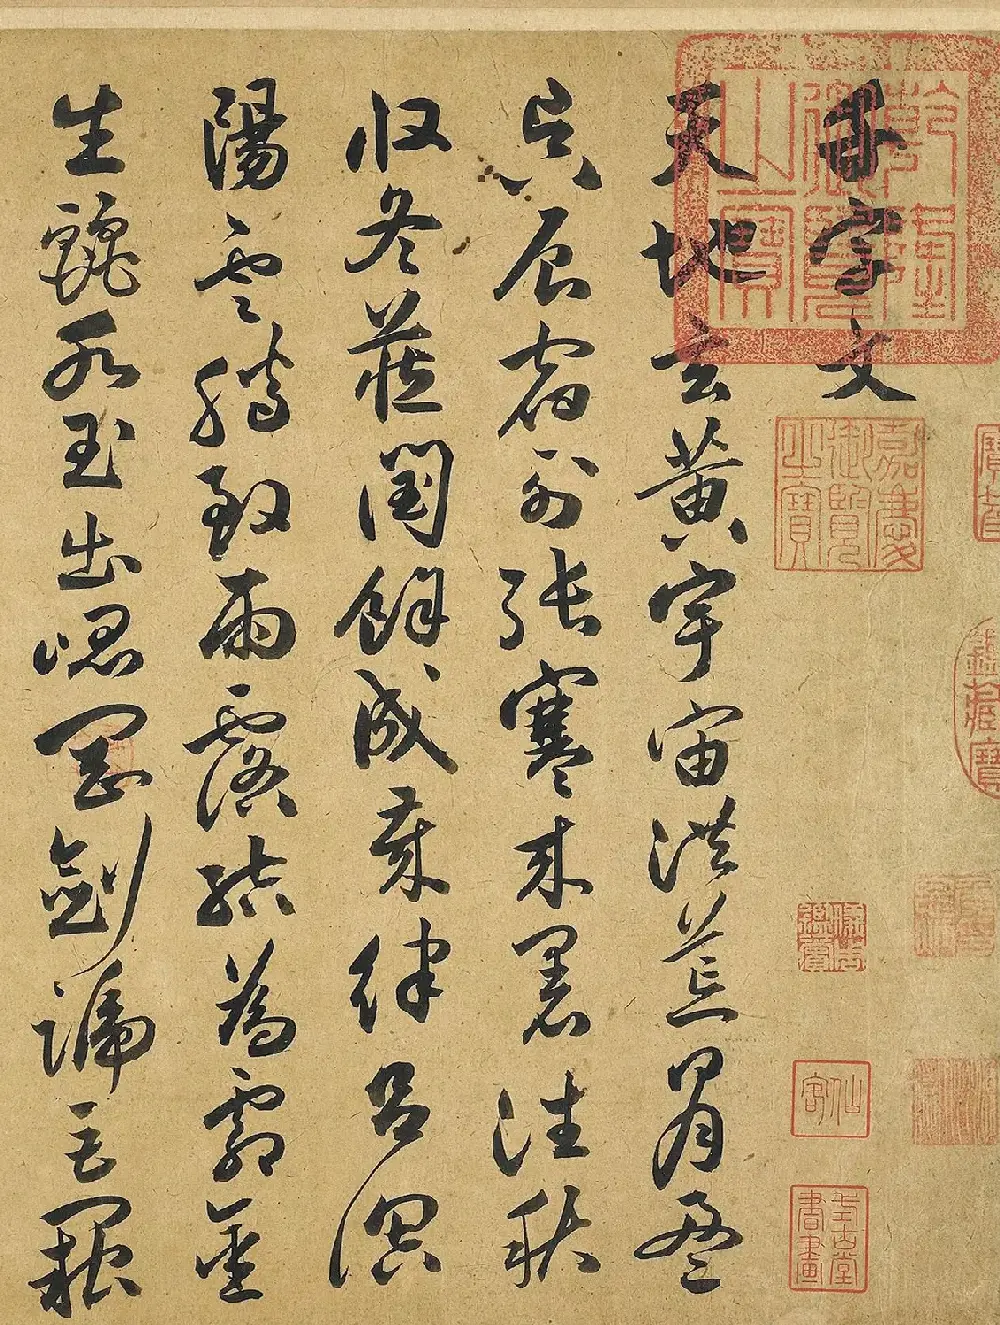 千字文
天地玄黃宇宙洪荒日月盈
昃辰宿列張寒來暑往秋
收冬藏閏餘成歲律呂調
陽雲騰致雨露結為霜金
生麗水玉出崐岡劍號巨闕
乾隆御覽之寶
嘉慶御覽之寶
仙客
式古堂書畫